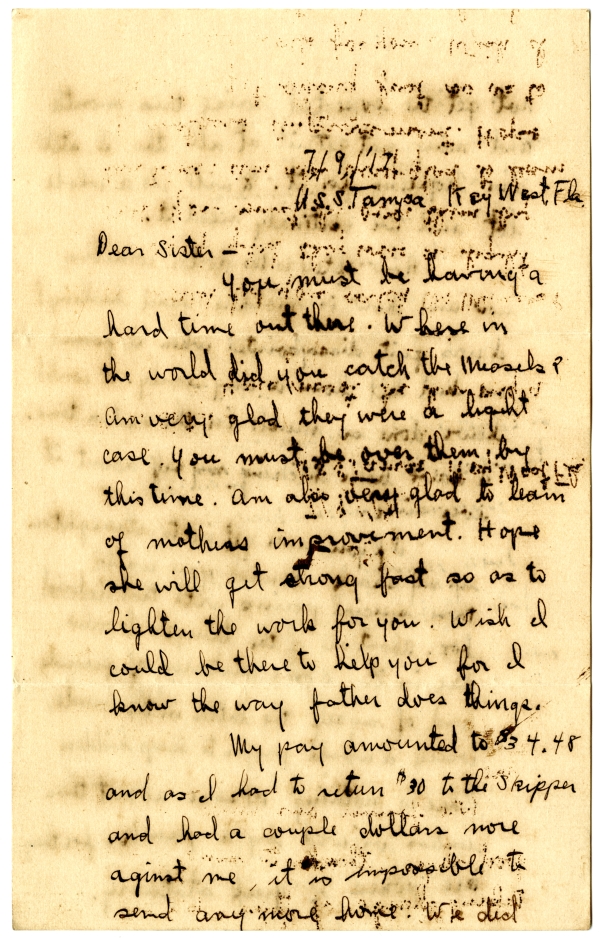 7/9/17
U.S.S. Tampa Key West Fla
Dear Sister –
You must be having a
hard time out there. Where in
the world did you catch the Measels?
Am very glad they were a light
case. You must be over them by
this time. Am also very glad to learn
of mothers improvement. Hope
she will get strong fast so as to
lighten the work for you. Wish I
could be there to help you for I
know the way father does things.
My pay amounted to $34.48
and as I had to return $30 to the Skipper
and had a couple dollars more
aginst me, it is impossible to
send any more home. We did